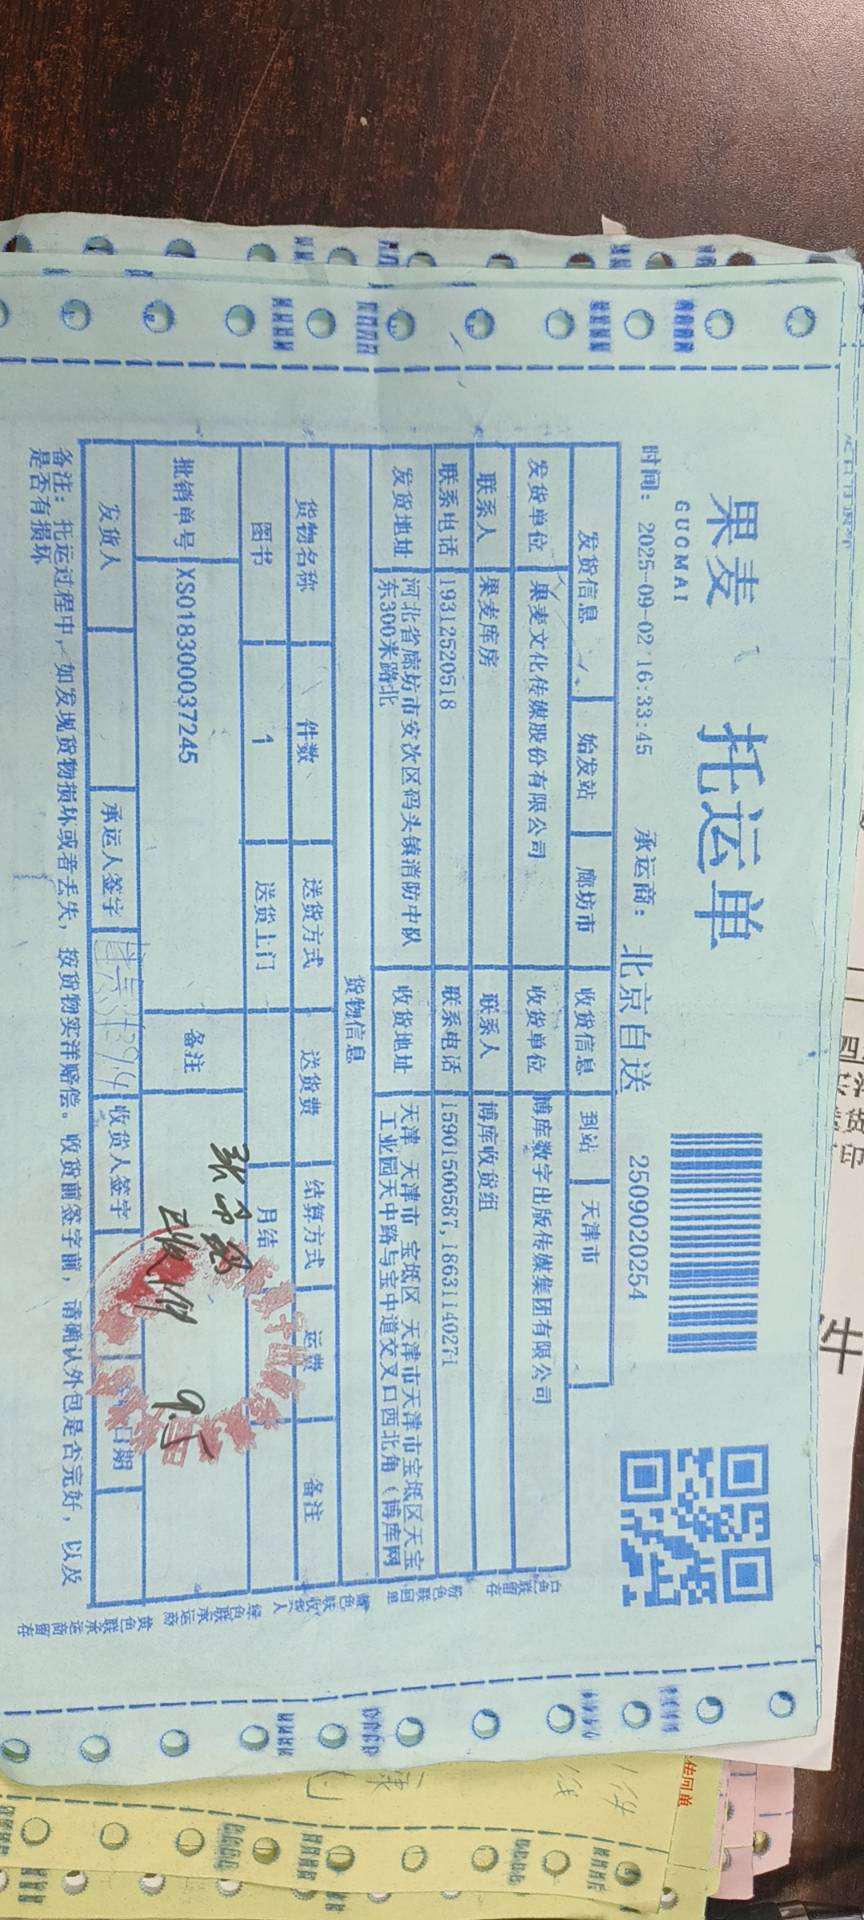 果麦
GUOMAI
托运单
时间: 2025-09-02 16:33:45 承运商: 北京自送 2509020254
发货信息 始发站 廊坊市 收货信息 到站 天津市
发货单位 果麦文化传媒股份有限公司 收货单位 博库数字出版传媒集团有限公司
联系人 果麦库房 联系人 博库收货组
联系电话 19312520518 联系电话 15901500587,18631140271
发货地址 河北省廊坊市安次区码头镇消防中队
东300米路北
收货地址 天津 天津市 宝坻区 天津市天津市宝坻区天宝
工业园天中路与宝中道交叉口西北角(博库网
货物信息
货物名称 件数 送货方式 送货费 结算方式 运费 备注
图书 1 送货上门 月结
批销单号 XS018300037245 备注
9.5
发货人 承运人签字 收货人签字 日期
备注: 托运过程中, 如发现货物损坏或者丢失, 按货物实洋赔偿。收货前签字前, 请确认外包是否完好, 以及
是否有损坏
白色联留存
粉色联回里
蓝色联收货人
绿色联承运商
黄色联承运商留存
件